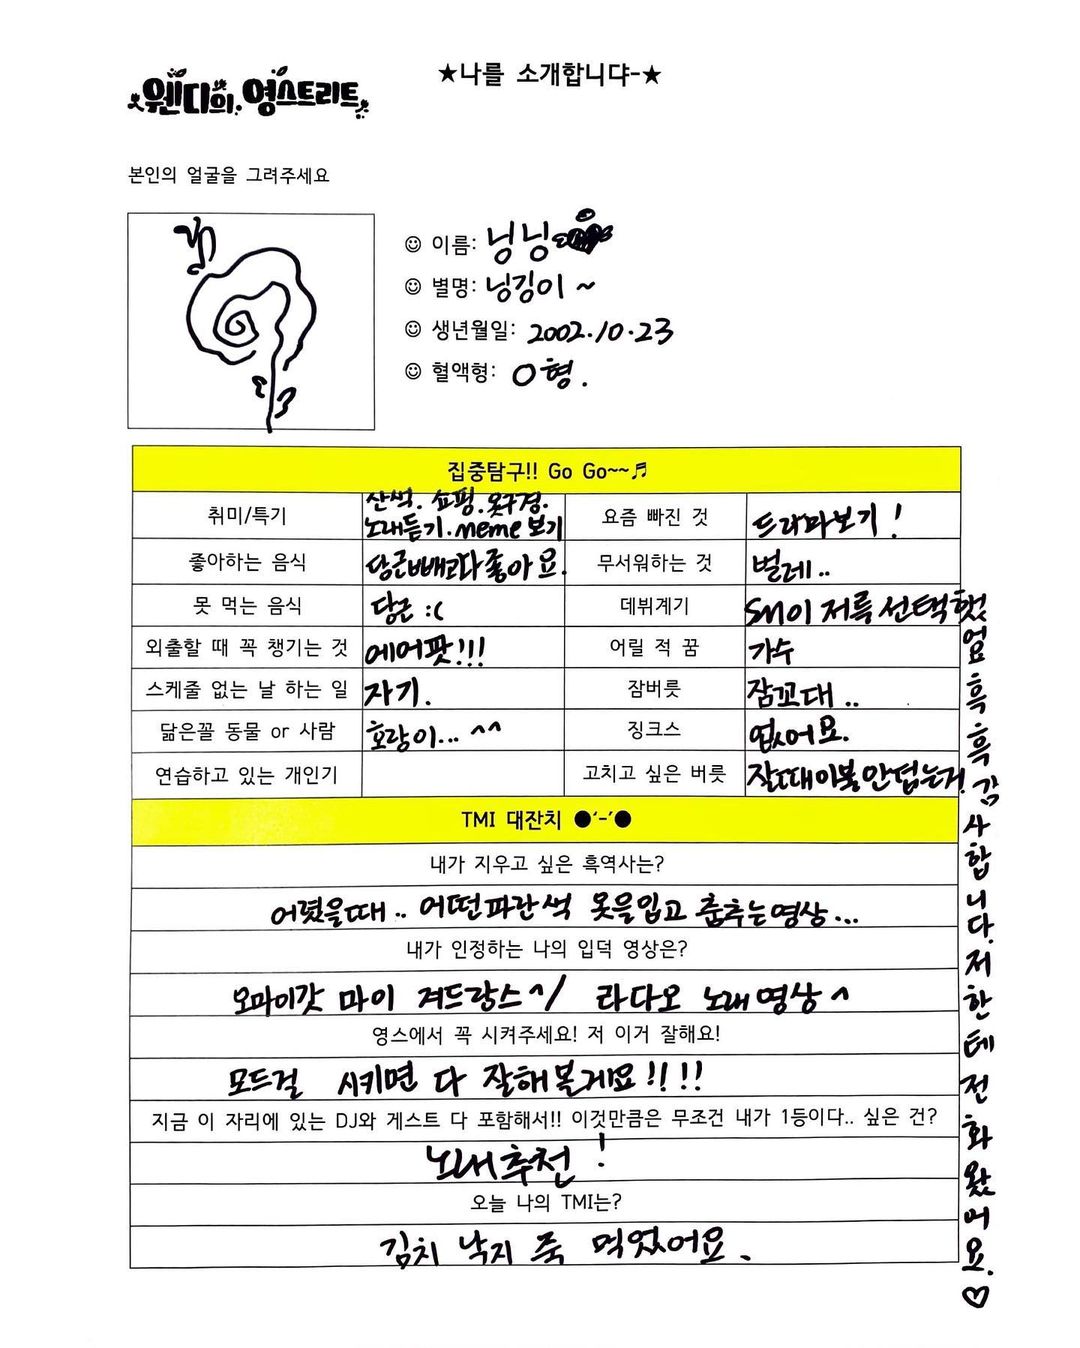 ★나를 소개합니댜-★
웬디의 영스트리트
본인의 얼굴을 그려주세요
☺ 이름: 닝닝
☺ 별명: 닝깅이 ~
☺ 생년월일: 2002.10.23
☺ 혈액형: O형.
집중탐구!! Go Go~~♬
취미/특기
산색. 쇼핑. 옷구경.
노래듣기. meme 보기
요즘 빠진 것
드라마보기!
좋아하는 음식
당근빼고다좋아요.
무서워하는 것
벌레..
못 먹는 음식
당근 :(
데뷔계기
SM이 저를 선택했
엉요 흑 흑 감사합니다. 저한테 전화 왔어요. ♡
외출할 때 꼭 챙기는 것
에어팟!!!
어릴 적 꿈
가수
스케줄 없는 날 하는 일
자기.
잠버릇
잠꼬대..
닮은꼴 동물 or 사람
호랑이... ^^
징크스
없어요.
연습하고 있는 개인기
고치고 싶은 버릇
잘때이불안덥는거.
TMI 대잔치 ●'-'●
내가 지우고 싶은 흑역사는?
어렸을때.. 어떤파란색 옷을입고 춤추는영상...
내가 인정하는 나의 입덕 영상은?
오마이갓 마이 겨드랑스^/ 라다오 노래영상^
영스에서 꼭 시켜주세요! 저 이거 잘해요!
모드걸 시키면 다 잘해볼게요!!!!
지금 이 자리에 있는 DJ와 게스트 다 포함해서!! 이것만큼은 무조건 내가 1등이다.. 싶은 건?
노래추천!
오늘 나의 TMI는?
김치 낙지 죽 먹었어요.